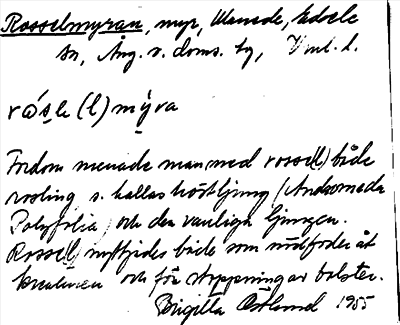 Rosselmyran, myr, Wanede, Edsele
sn, Ång. v. doms. tg, Vnl. l.
rɷ̀sle (l) mýra
Fordom menade man med rossel(l) både
rosling s. kallas höstljung (Andromeda
Polyfolia) och den vanliga ljungen.
Rossel(l) nyttjades både som nödfoder åt
kreaturen och för stoppning av bolster.
Birgitta Östlund 1955